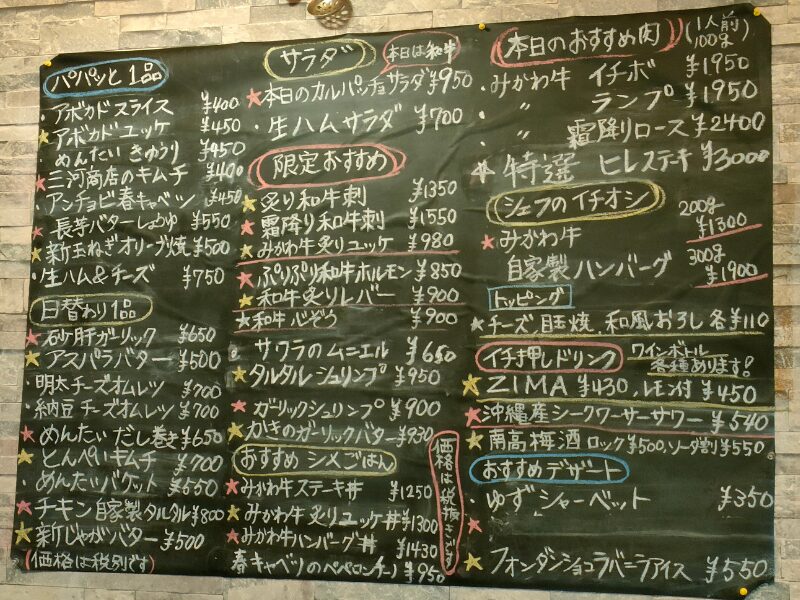 パパッと1品
・アボカドスライス ¥400
★アボカドユッケ ¥450
・めんたいきゅうり ¥450
★三河商店のキムチ ¥400
・アンチョビ春キャベツ ¥450
★長芋バターしょうゆ ¥550
★新玉ねぎオリーブ焼 ¥500
・生ハム&チーズ ¥750
日替わり1品
★砂肝ガーリック ¥650
★アスパラバター ¥500
・明太チーズオムレツ ¥700
・納豆チーズオムレツ ¥700
★めんたいだし巻き ¥650
★とんぺいキムチ ¥700
・めんたいバケット ¥550
★チキン自家製タルタル ¥800
★新じゃがバター ¥500
(価格は税別です)
サラダ
本日は和牛
★本日のカルパッチョサラダ ¥950
・生ハムサラダ ¥700
限定おすすめ
★炙り和牛刺 ¥1350
★霜降り和牛刺 ¥1550
★みかわ牛炙りユッケ ¥980
★ぷりぷり和牛ホルモン ¥850
★和牛炙りレバー ¥900
★和牛心ぞう ¥900
サワラのムニエル ¥650
★タルタルシュリンプ ¥950
★ガーリックシュリンプ ¥900
★かきのガーリックバター ¥930
おすすめシメごはん
★みかわ牛ステーキ丼 ¥1250
★みかわ牛炙りユッケ丼 ¥1300
★みかわ牛ハンバーグ丼 ¥1430
春キャベツのペペロンチーノ ¥950
価格は税抜きです
本日のおすすめ肉
(1人前100g)
・みかわ牛 イチボ ¥1950
・〃 ランプ ¥1950
・〃 霜降りロース ¥2400
★特選 ヒレステキ ¥3000
シェフのイチオシ
★みかわ牛
自家製ハンバーグ
200g ¥1300
300g ¥1900
トッピング
★チーズ.目玉焼.和風おろし各¥110
イチ押しドリンク
ワインボトル各種あります!
★ZIMA ¥430.レモン付¥450
★沖縄産シークワーサーサワー ¥540
★南高梅酒 ロック¥500,ソーダ割¥550
おすすめデザート
・ゆずシャーベット ¥350
★
★フォンダンショコラバニラアイス ¥550